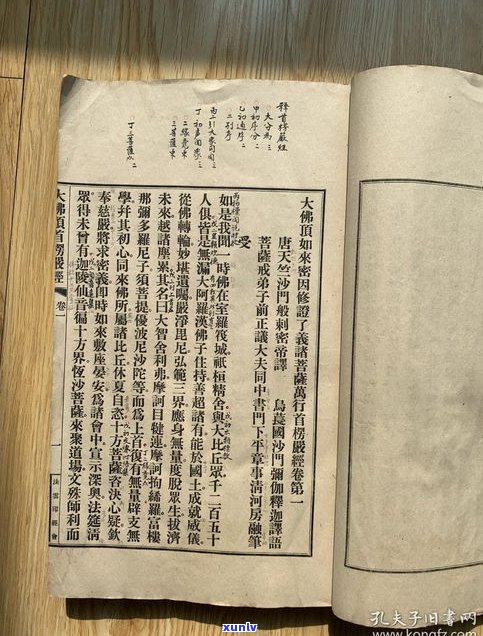 大佛頂如來密因修證了義諸菩薩萬行首楞嚴經卷第一
唐天竺沙門般刺密帝譯　烏萇國沙門彌伽釋迦譯語
菩薩戒弟子前正議大夫同中書門下平章事清河房融筆
受
如是我聞一時佛在室羅筏城祇桓精舍與大比丘眾千二百五十
人俱皆是無漏大阿羅漢佛子住持善超諸有能於國土成就威儀
從佛轉輪妙堪遺囑嚴淨毘尼弘範三界應身無量度脫眾生拔濟
未來越諸塵累其名曰大智舍利弗摩訶目犍連摩訶拘絺羅富樓
那彌多羅尼子須菩提優波尼沙陀等而為上首復有無量辟支無
學并其初心同來佛所屬諸比丘休夏自恣十方菩薩咨決心疑欽
奉慈嚴將求密義即時如來敷座宴安為諸會中宣示深奧法筵清
眾得未曾有迦陵仙音徧十方界恆沙菩薩來聚道場文殊師利而
大佛頂首楞嚴經　卷一
一
法雲印經會
釋首楞嚴經
大分為三
甲初序分二
乙初通序二
二別序
丁初聲聞眾三
二緣覺眾
三菩薩眾
丁三菩薩眾二
孔夫子旧书网
www.kongfz.com
xunlv